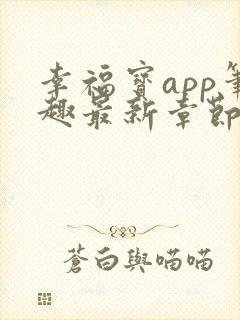 幸福寶app筆
趣最新章節
蒼白與喵喵